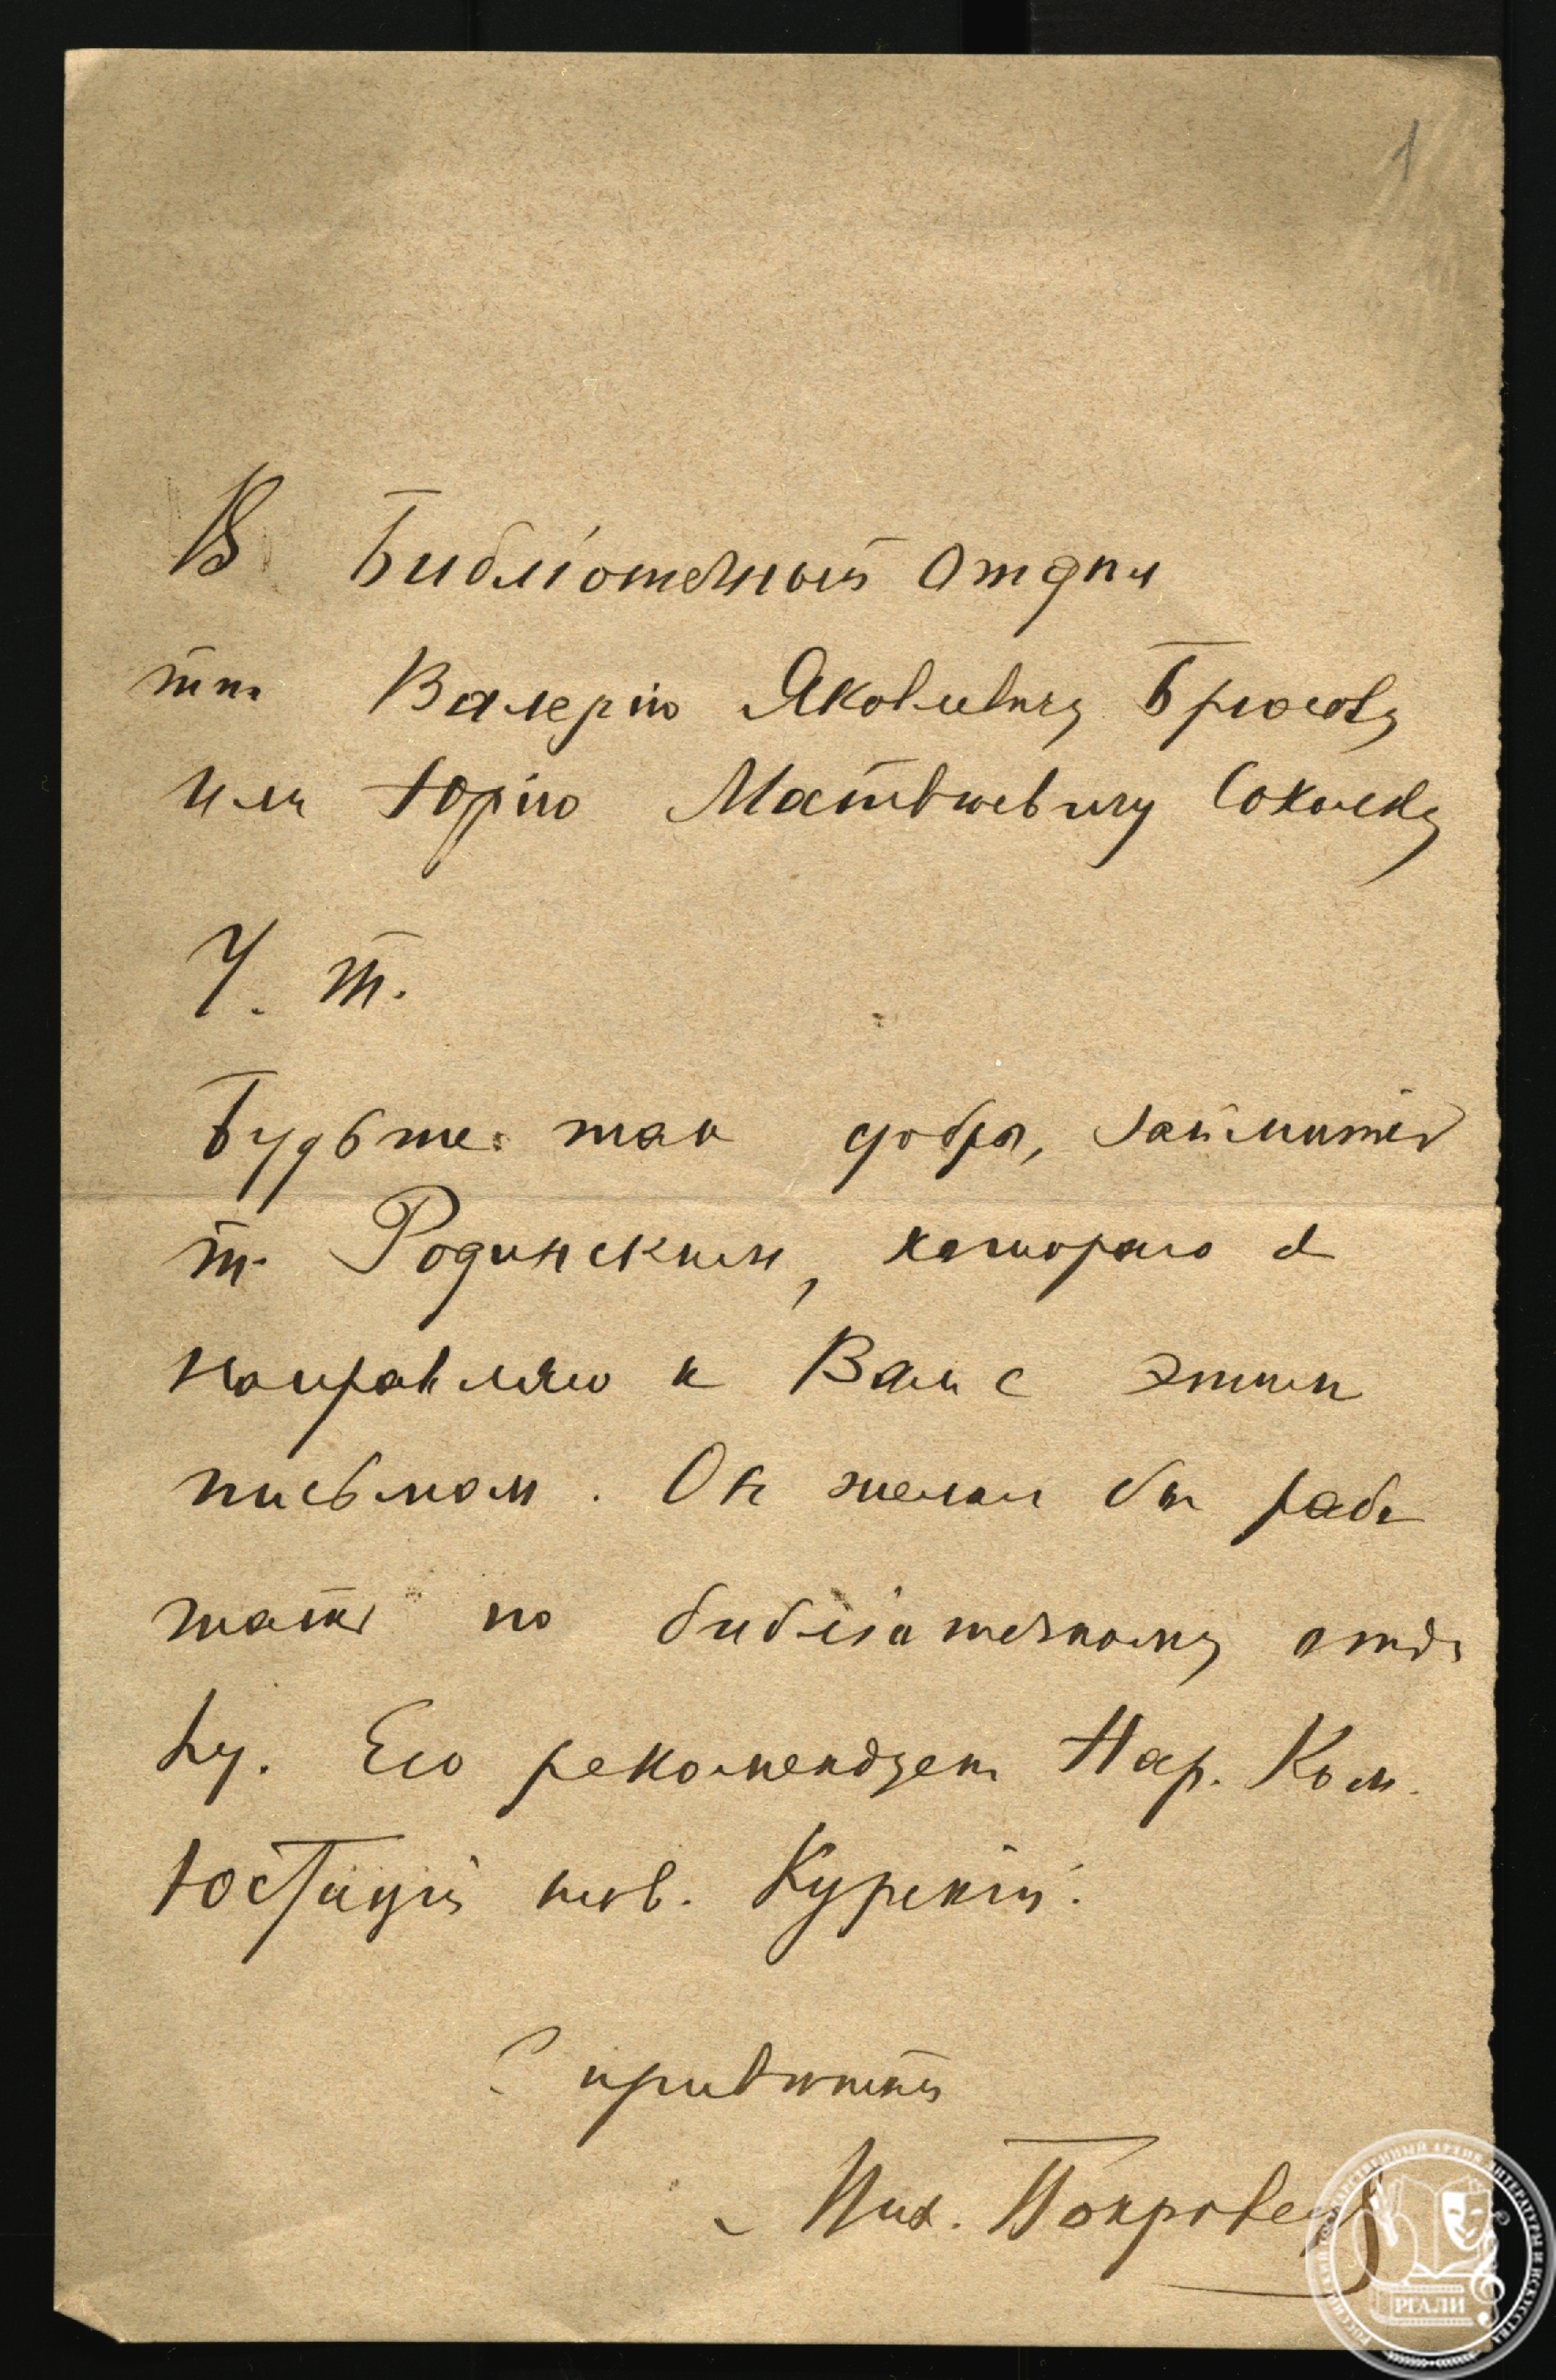 1
В Библіотечный Отдел
тт. Валерію Яковлевичу Брюсову
или Юрію Матвѣевичу Соколову
У. т.
Будьте так добры, займитесь
т. Родинским, котораго я
направляю к Вам с этим
письмом. Он желал бы рабо
тать по библіотечному отдѣ
лу. Его рекомендует Нар. Ком.
Юстиціи тов. Курскій.
С привѣтом
Мих. Покровский
РОССИЙСКИЙ ГОСУДАРСТВЕННЫЙ АРХИВ ЛИТЕРАТУРЫ И ИСКУССТВА
РГАЛИ